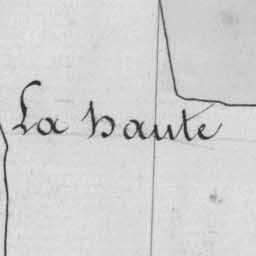 La haute